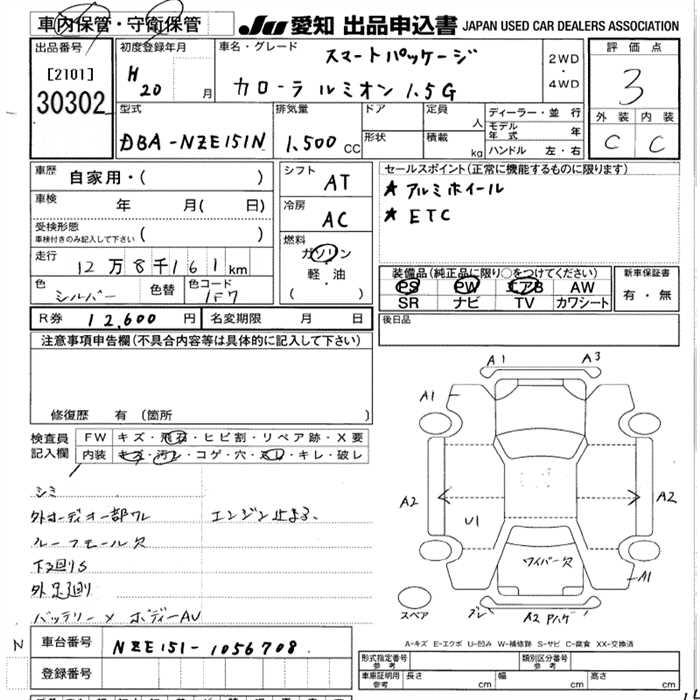 車内保管・守衛保管 JU 愛知 出品申込書 JAPAN USED CAR DEALERS ASSOCIATION
出品番号 [2101] 30302
初度登録年月 H20 月
車名・グレード スマートパッケージ カローラ ルミオン 1.5G
2WD・4WD
評価点 3
外装 内装
C C
型式 DBA-NZE151N
排気量 1,500 CC
ドア 形状
定員 人
積載 kg
ディーラー・並行
モデル年式 年
ハンドル 左・右
車歴 自家用・( )
車検 年 月( 日)
受検形態 車検付きのみ記入して下さい ( )
走行 12万8千161km
色 シルバー 色替 色コード 1F7
シフト AT
冷房 AC
燃料 ガソリン 軽・油 ( )
セールスポイント(正常に機能するものに限ります)
★ アルミホイール
★ ETC
装備品(純正品に限り○をつけてください)
PS PW エアB AW
SR ナビ TV カワシート
新車保証書 有・無
R券 12,600 円 名変期限 月 日
後日品
注意事項申告欄(不具合内容等は具体的に記入して下さい)
修復歴 有 (箇所 )
検査員記入欄
FW キズ・飛石・ヒビ割・リペア跡・X要
内装 キズ・汚レ・コゲ・穴・スレ・キレ・破レ
シミ
外オーディオ一部ワレ エンジン止まる、
ルーフモール欠
下廻りS
外足廻り
バッテリーメ ボディーAU
A1 A3
A1
A2 A2
U1
ワイパー欠
A1
スペア
ブレ A2 Pハゲ
A-キズ E-エクボ U-凹み W-補修跡 S-サビ C-腐食 XX-交換済
N
車台番号 NZE151-1056708
登録番号
形式指定番号 参考 類別区分番号 参考
車庫証明用 参考 長さ cm 幅 cm 高さ cm